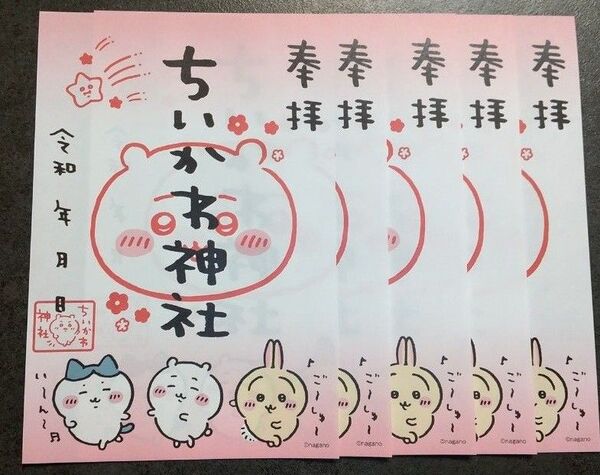 奉拝
ちいかわ神社
令和 年 月 日
ちいかわ
神社
い〜ん〜
ご〜しゅ〜
©nagano
奉拝
ご〜しゅ〜
©nagano
奉拝
ご〜しゅ〜
©nagano
奉拝
ご〜しゅ〜
©nagano
奉拝
ご〜しゅ〜
©nagano